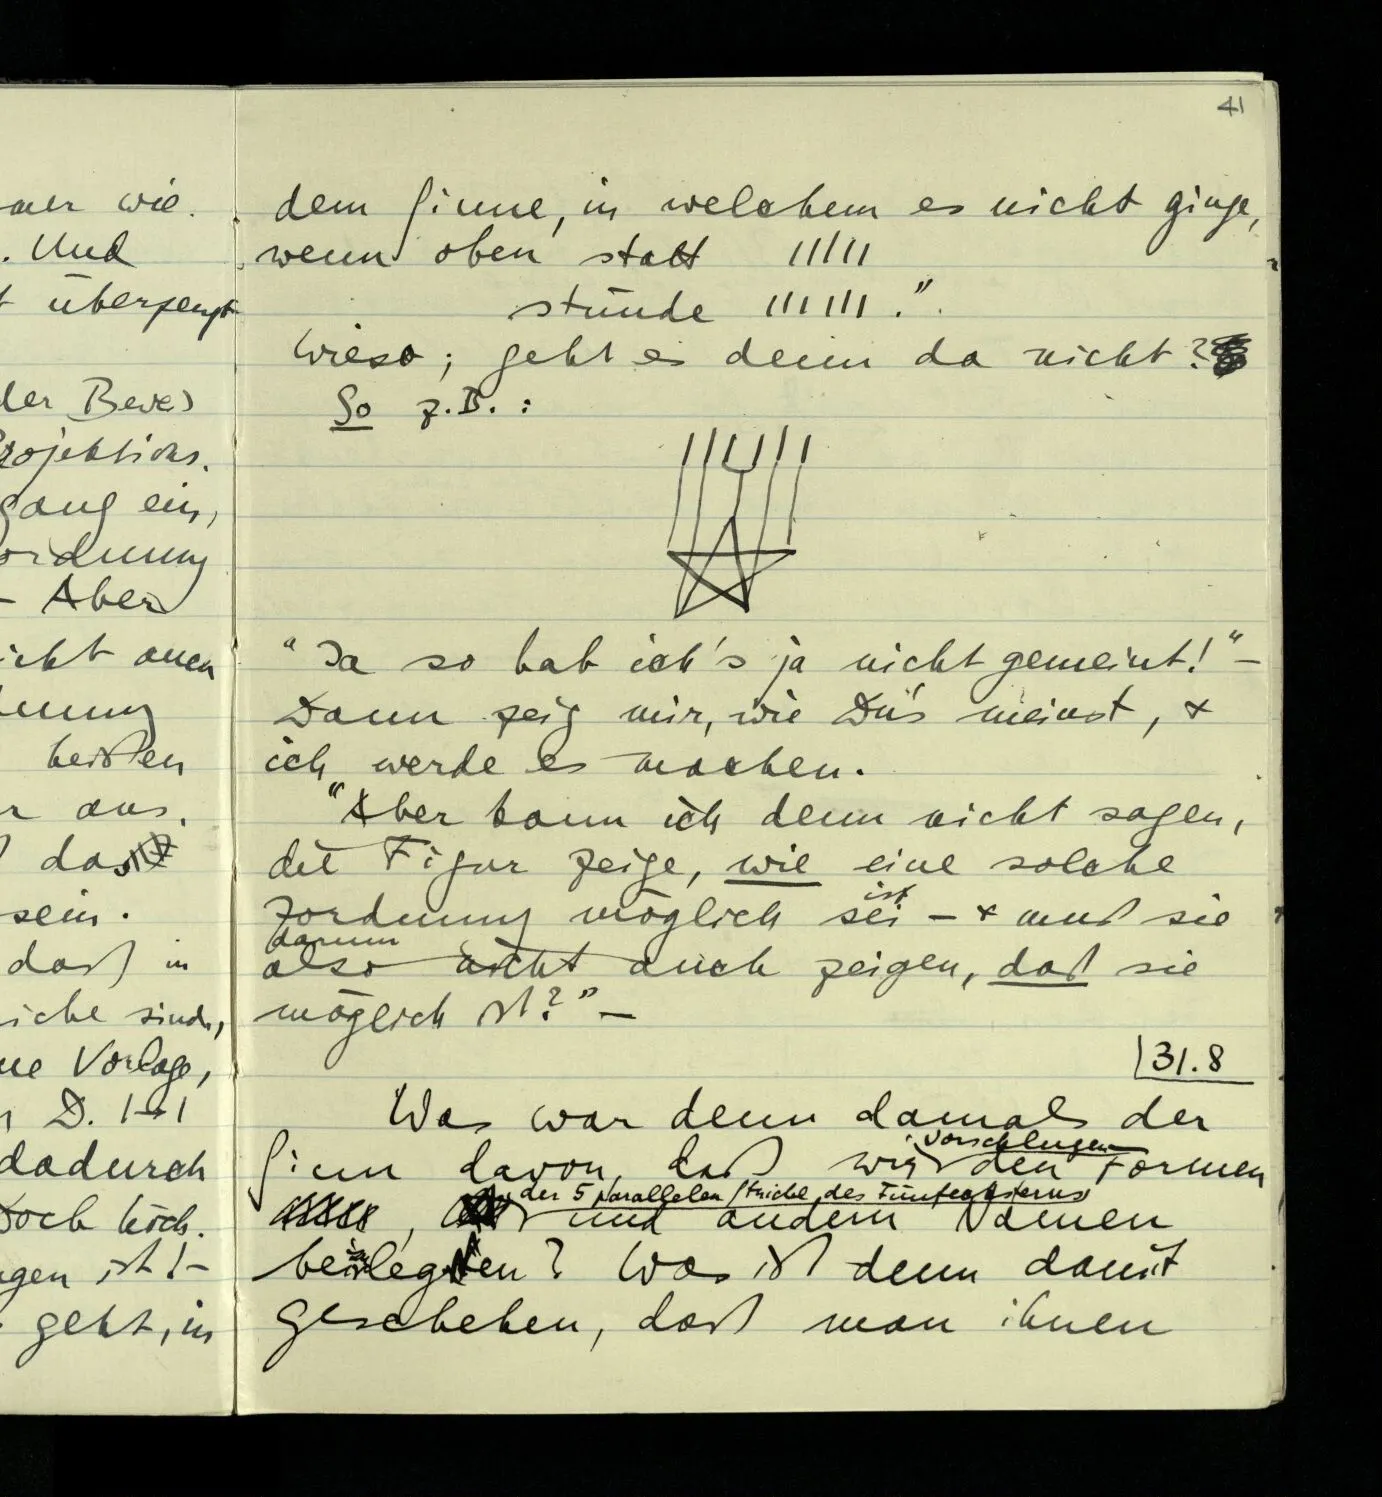 41
mer wie.
. Und
t überzeugt
der Bewei
Projektions.
gang ein,
ordnung
– Aber
icht auch
nung
heißen
r aus.
daß
sein.
daß in
iche sind,
ne Vorlage,
D. 1→1
dadurch
Doch höch.
gen ist! –
geht, in
dem Sinne, in welchem es nicht ginge,
wenn oben statt |||||
stünde |||||| .".
Wieso; geht es denn da nicht?
So z.B. :
"Ja so hab ich's ja nicht gemeint!" –
Dann zeig mir, wie Du's meinst, &
ich werde es machen.
"Aber kann ich denn nicht sagen,
die Figur zeige, wie eine solche
ist
Zordnung möglich sei – & muß sie
darum
also nicht auch zeigen, daß sie
möglich ist?" –
31.8
Was war denn damals der
vorschlugen
Sinn davon, daß wir den Formen
der 5 parallelen Striche des Fünfecksterns
und andern Namen
beizulegen? Was ist denn damit
geschehen, daß man ihnen